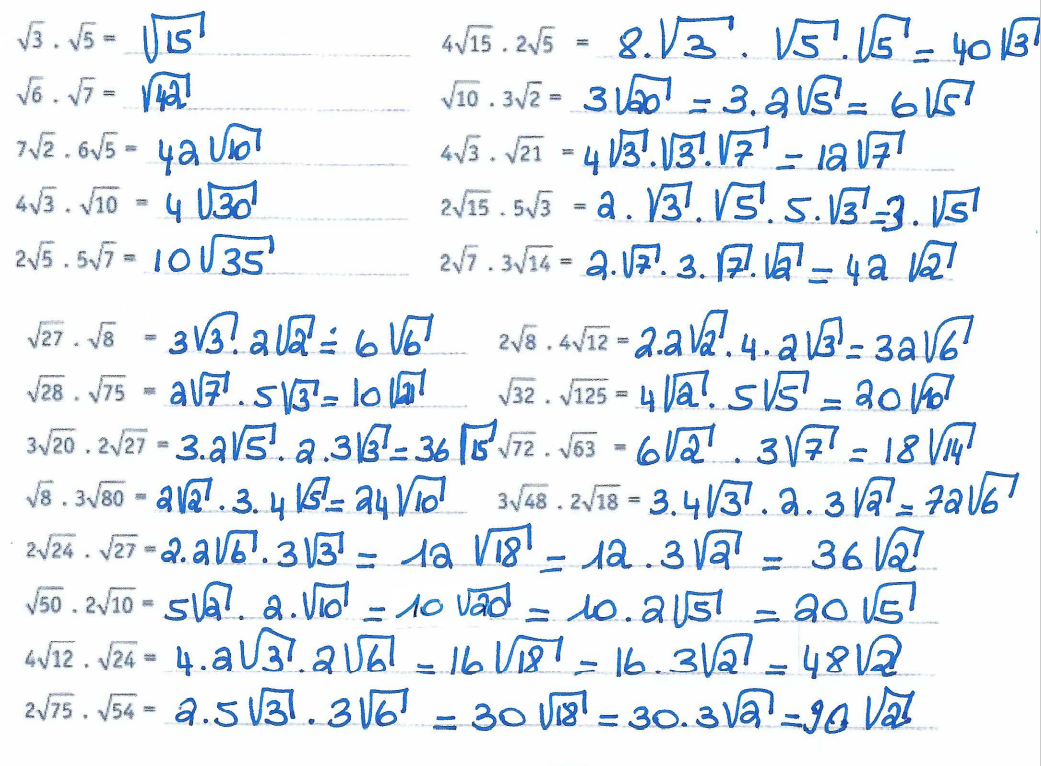 √3 . √5 = √15
√6 . √7 = √42
7√2 . 6√5 = 42√10
4√3 . √10 = 4√30
2√5 . 5√7 = 10√35
4√15 . 2√5 = 8.√3 . √5.√5 = 40√3
√10 . 3√2 = 3√20 = 3.2√5 = 6√5
4√3 . √21 = 4√3.√3.√7 = 12√7
2√15 . 5√3 = 2.√3.√5.5.√3=3.√5
2√7 . 3√14 = 2.√7.3.√7.√2 = 42√2
√27 . √8 = 3√3.2√2 = 6√6
√28 . √75 = 2√7.5√3 = 10√21
3√20 . 2√27 = 3.2√5.2.3√3 = 36√15
√8 . 3√80 = 2√2.3.4√5 = 24√10
2√8 . 4√12 = 2.2√2.4.2√3 = 32√6
√32 . √125 = 4√2.5√5 = 20√10
√72 . √63 = 6√2 . 3√7 = 18√14
3√48 . 2√18 = 3.4√3.2.3√2 = 72√6
2√24 . √27 = 2.2√6.3√3 = 12√18 = 12.3√2 = 36√2
√50 . 2√10 = 5√2.2.√10 = 10√20 = 10.2√5 = 20√5
4√12 . √24 = 4.2√3.2√6 = 16√18 = 16.3√2 = 48√2
2√75 . √54 = 2.5√3.3√6 = 30√18 = 30.3√2 = 90√2